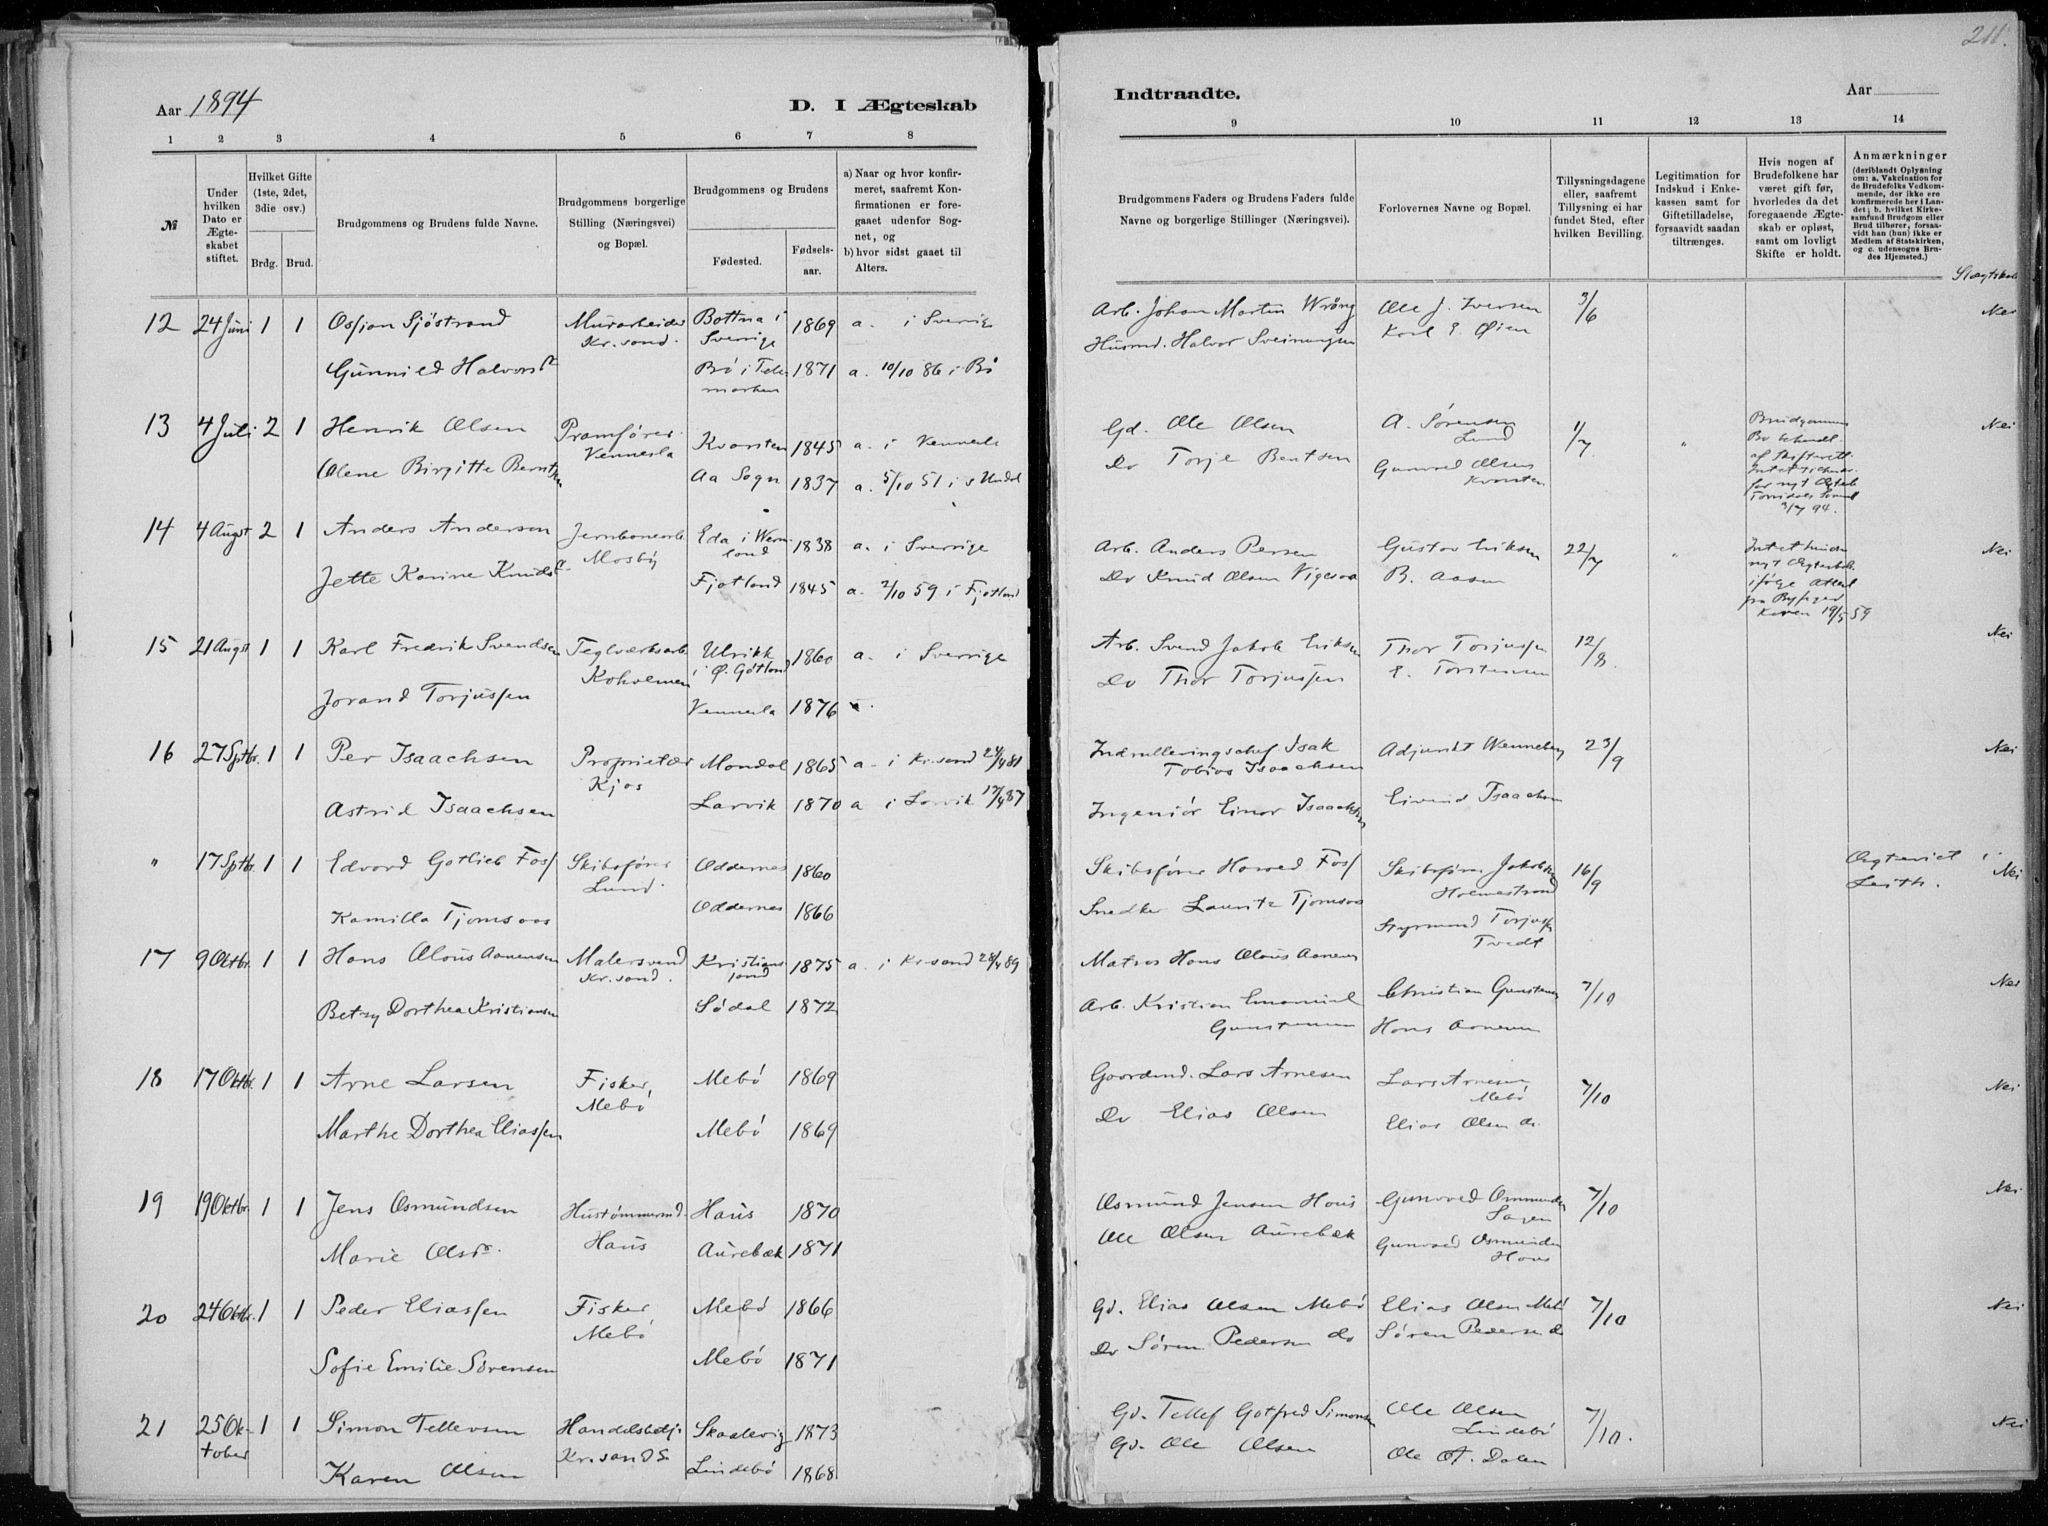 211.
Aar 1894
D. I Ægteskab
Indtraadte.
Aar
1 2 3 4 5 6 7 8
9 10 11 12 13 14
№
Under hvilken Dato er Ægteskabet stiftet.
Hvilket Gifte (1ste, 2det, 3die osv.)
Brdg. Brud.
Brudgommens og Brudens fulde Navne.
Brudgommens borgerlige Stilling (Næringsvei) og Bopæl.
Brudgommens og Brudens
Fødested.
Fødselsaar.
a) Naar og hvor konfirmeret, saafremt Konfirmationen er foregaaet udenfor Sognet, og
b) hvor sidst gaaet til Alters.
Brudgommens Faders og Brudens Faders fulde Navne og borgerlige Stillinger (Næringsvei).
Forlovernes Navne og Bopæl.
Tillysningsdagene eller, saafremt Tillysning ei har fundet Sted, efter hvilken Bevilling.
Legitimation for Indskud i Enkekassen samt for Giftetilladelse, forsaavidt saadan tiltrænges.
Hvis nogen af Brudefolkene har været gift før, hvorledes da det foregaaende Ægteskab er opløst, samt om lovligt Skifte er holdt.
Anmærkninger (deriblandt Oplysning om: a. Vakcination for de Brudefolks Vedkommende, der ikke ere konfirmerede her i Landet; b. hvilket Kirkesamfund Brudgom eller Brud tilhører, forsaavidt han (hun) ikke er Medlem af Statskirken, og c. udensogns Brudes Hjemsted.)
Slægtskab
12 24 Juni 1 1 Osjan Sjöstrand Murarbeider Bottna i 1869 a. i Sverrige Arb. Johan Martin Wrång Ole J. Iversen 3/6 Nei
Kr.sand. Sverrige Husmd. Halvor Sveinungsen Karl E. Øien
Gunnild Halvorsdr Bø i Tele- 1871 a. 10/10 86 i Bø
marken
13 4 Juli 2 1 Henrik Olsen Pramfører Kvarsten 1845 a. i Vennesla Gd. Ole Olsen A. Sørensen 1/7 " Brudgommens Nei
Vennesla Lund Bo behandl.
Olene Birgitte Berntsen Aa Sogn 1837 a. 5/10 51 i S Undal Do Torje Bentsen Gunvald Olsen af Skifterett.
Kvarsten Intet
for nyt Ægtesk.
3/7 94.
14 4 Augst 2 1 Anders Anderson Jernbanearb. Eda i Werm- 1838 a. i Sverrige Arb. Anders Persen Gustav Eriksen 22/7 " Intet Nei
Mosby land nyt Ægteskab
Jette Karine Knudsdr. Fjotland 1845 a. 2/10 59 i Fjotland Do Knud Olsen Vigesaa B. Aasen ifølge Attest
fra Byfoged
19/5 59
15 21 Augst 1 1 Karl Fredrik Svendsen Teglværksarb. Ulrikk 1860 a. i Sverrige Arb. Svend Jakob Eriksen Thor Torjussen 12/8. Nei
Koholmen i Ø. Götland
Jorand Torjussen Vennesla 1876 Do Thor Torjussen E. Torstensen
16 27 Sptbr. 1 1 Per Isaachsen Proprietær Mandal 1865 a. i Kr.sand 24/4 81 Indrulleringschef Isak Adjunkt Wenneberg 23/9 Nei
Kjos Tobias Isaachsen
Astrid Isaachsen Larvik 1870 a i Larvik 17/4 87 Ingeniør Einar Isaachsen Eivind Isaachsen
" 17 Sptbr. 1 1 Edvard Gotlieb Foss Skibsfører Oddernes 1860 Skibsfører Harved Foss Skibsfører Jakobsen 16/9 Ægteviet i Nei
Lund. Holmestrand Leith.
Kamilla Tjomsaas Oddernes 1866 Snedker Lauritz Tjomsaas Styrmand Torjussen
Tvedt
17 9 Oktbr. 1 1 Hans Olaus Aanensen Malersvend Kristians- 1875 a. i Kr.sand 28/4 89 Matros Hans Olaus Aanensen
Kr.sand. sand
Betzy Dorthea Kristiansen Sødal 1872 Arb. Kristian Emanuel Christian Gunstensen 7/10 Nei
Gunstensen Hans Aanensen
18 17 Oktbr. 1 1 Arne Larsen Fisker, Mebø 1869 Gaardmd. Lars Arnesen Lars Arnesen 7/10 Nei
Mebø Mebø
Marthe Dorthea Eliassen Mebø 1869 Do Elias Olsen Elias Olsen do.
19 19 Oktbr. 1 1 Jens Osmundsen Hustømmermd. Haus 1870 Osmund Jensen Haus Gunvald Ommundsen 7/10 Nei
Haus Sagen
Marie Olsdr. Aurebæk 1871 Ole Olsen Aurebæk Gunvald Osmundsen
Haus
20 24 Oktbr. 1 1 Peder Eliassen Fisker Mebø 1866 Gd. Elias Olsen Mebø Elias Olsen Mebø 7/10 Nei
Mebø
Sofie Emilie Sørensen Mebø 1871 Do Søren Pedersen do Søren Pedersen do
21 25 Ok- 1 1 Simon Tellevsen Handelsbetj. Skaalevig 1873 Gd. Tellef Gotfred Simonsen Ole Olsen 7/10. Nei
tober Kr.sand S. Lindebø
Karen Olsen Lindebø 1868 Gd. Ole Olsen Ole A. Dalen